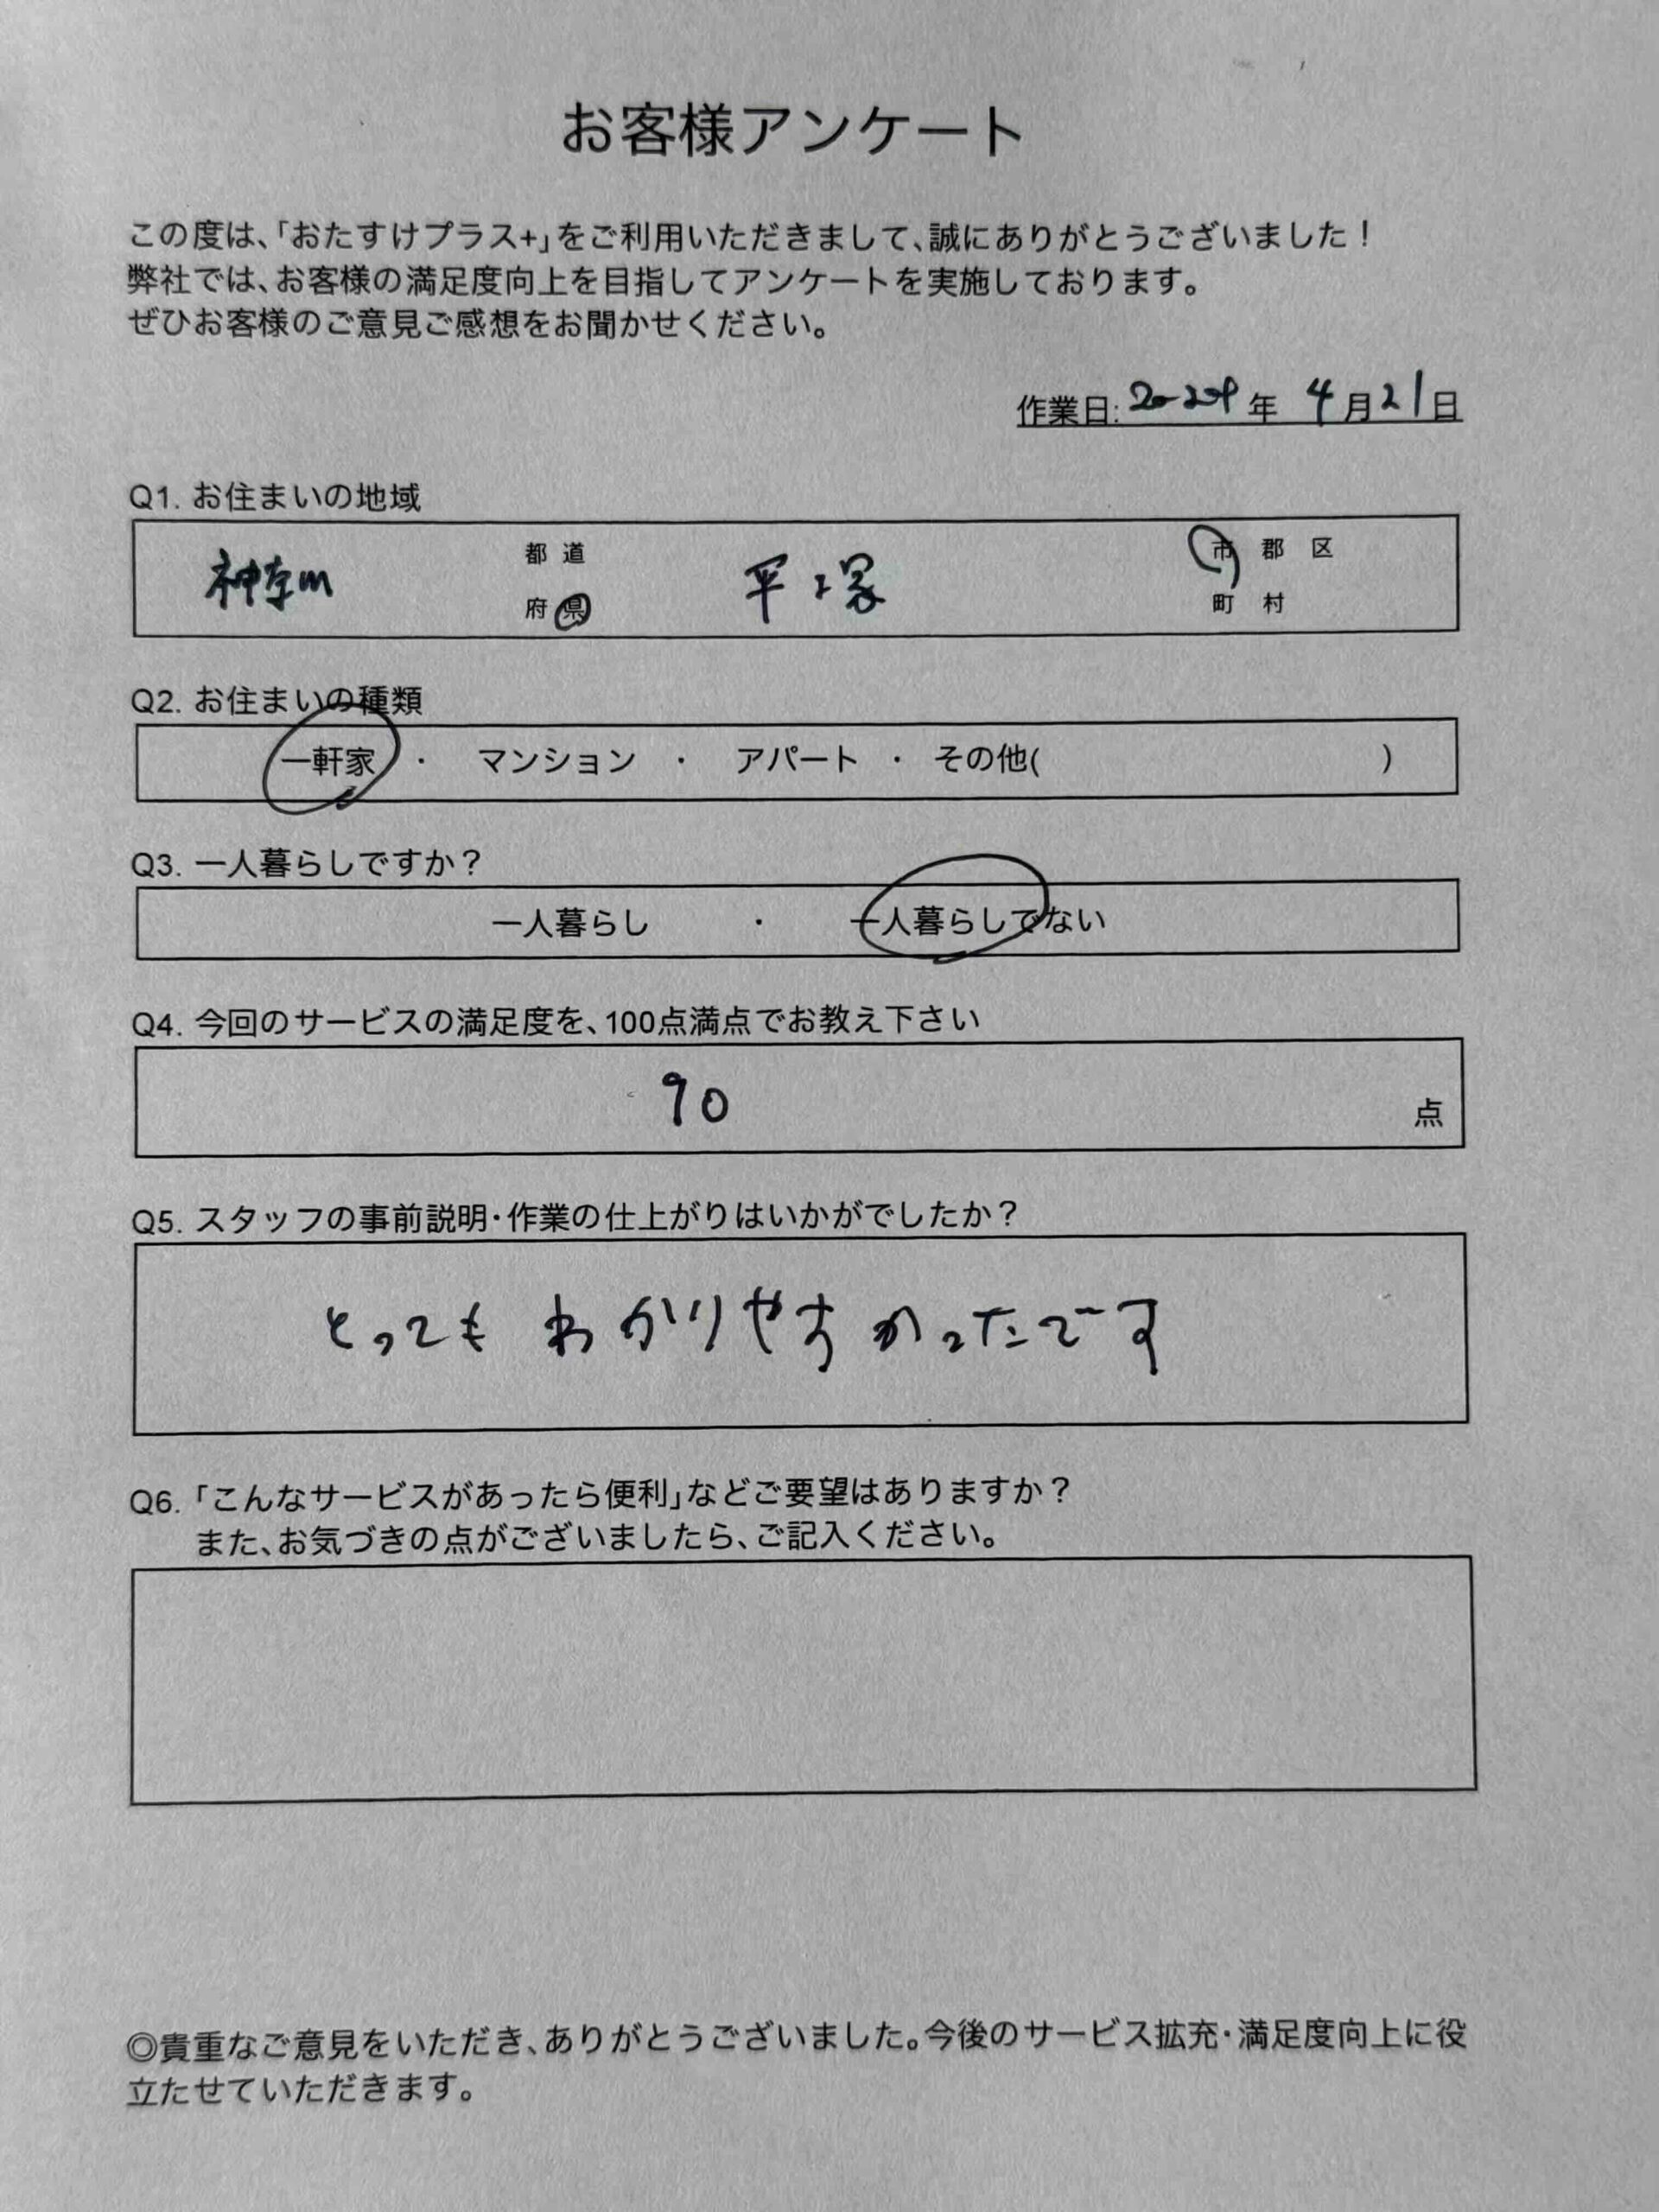 お客様アンケート
この度は、「おたすけプラス+」をご利用いただきまして、誠にありがとうございました！
弊社では、お客様の満足度向上を目指してアンケートを実施しております。
ぜひお客様のご意見ご感想をお聞かせください。
作業日: 2024 年 4 月 21 日
Q1. お住まいの地域
神奈川 都 道 府 県 平塚 市 郡 区 町 村
Q2. お住まいの種類
一軒家 ・ マンション ・ アパート ・ その他( )
Q3. 一人暮らしですか？
一人暮らし ・ 一人暮らしでない
Q4. 今回のサービスの満足度を、100点満点でお教え下さい
90 点
Q5. スタッフの事前説明・作業の仕上がりはいかがでしたか？
とっても わかりやすかったです
Q6. 「こんなサービスがあったら便利」などご要望はありますか？
また、お気づきの点がございましたら、ご記入ください。
◎貴重なご意見をいただき、ありがとうございました。今後のサービス拡充・満足度向上に役
立たせていただきます。